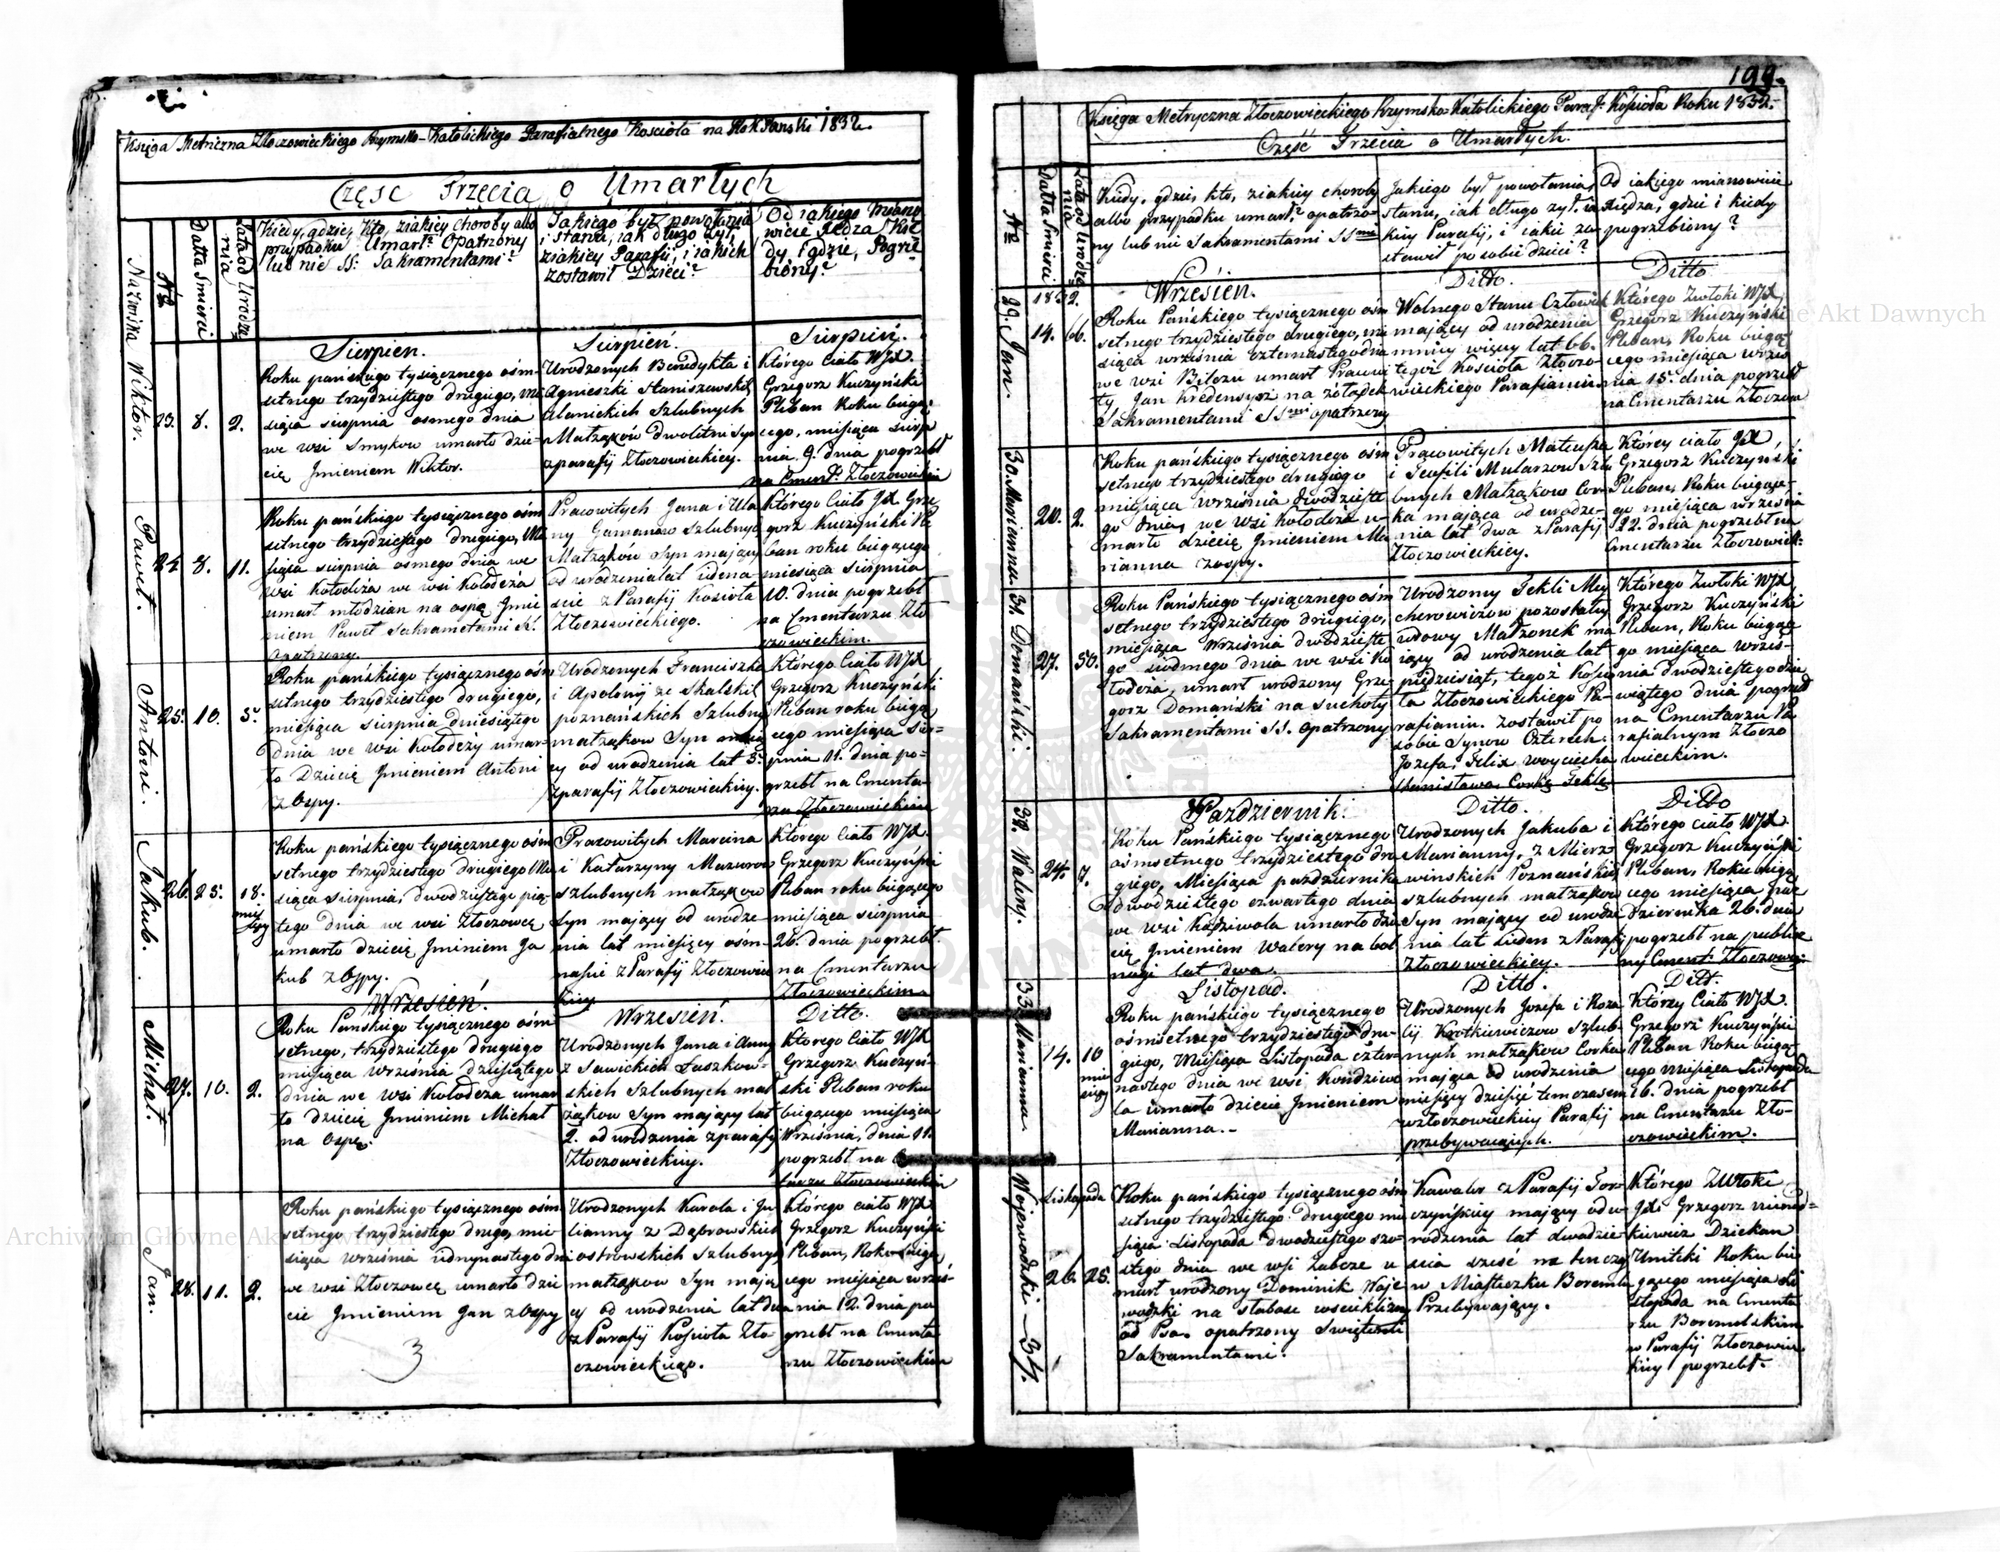 Księga Metryczna Złoczowieckiego Rzymsko-Katolickiego Parafialnego Kościoła na Rok Pański 1832.
Część Trzecia o Umarłych
Nazwiska
No
Datta Śmierci
Lata od Urodzenia
Kiedy, gdzie, Kto, z iakiey Choroby albo
przypadku Umarł? Opatrzony
lub nie SS: Sakramentami?
Jakiego był powołania
i stanu, iak długo żył,
z iakiey Parafii, i iakich
zostawił Dzieci?
Od iakiego Miano
wicie Xiędza Kie
dy i gdzie, Pogrze
biony?
Wiktor.
23.
8.
2.
Sierpień.
Roku pańskiego tysiącznego óśm
setnego trzydziestego drugiego, Mie
siąca sierpnia osmego dnia
we wsi Smykow umarło dzie-
cię Jmieniem Wiktor.
Sierpień.
Urodzonych Benedykta i
Agnieszki Staniszewskich
Ulanickich Szlubnych
Małżąkow dwoletni Syn
z parafij Złoczowieckiey.
Sierpień.
Którego Ciało WJX.
Grzegorz Kuczyński
Pleban Roku bieżą
cego, miesiąca sierp
nia 9. dnia pogrzebł
na Cment. Złoczowieckim
Paweł.
24.
8.
11.
Roku pańskiego tysiącznego óśm
setnego trzydziestego drugiego, Mie
siąca sierpnia osmego dnia we
Wsi Kołodeża we wsi Kołodeża
umarł młodzian na ospę Jmie
niem Paweł Sakramentami S.
Opatrzony.
Pracowitych Jana i Ula
ny Gamanów Szlubnych
Małżąkow Syn maiący
od urodzenia lat iedena
ście z Parafij Kosioła
Złoczowieckiego.
Którego Ciało JX Grze
gorz Kuczyński Ple
ban roku bieżącego
miesiąca sierpnia
10. dnia pogrzebł
na Cmentarzu Zło
czowieckim.
Antoni.
25.
10.
5.
Roku pańskiego tysiącznego óśm
setnego trzydziestego drugiego,
miesiąca sierpnia dziesiątego
dnia we wsi Kołodeży umar-
ło Dziecię Jmieniem Antoni
z Ospy.
Urodzonych Franciszka
i Apolony ze Skalskich
poznańskich Szlubnych
małżąkow Syn maią
cy od urodzenia lat 5.
z parafij Złoczowieckiey.
Którego Ciało WJX
Grzegorz Kuczyński
Pleban roku bieżą
cego miesiąca sier-
pnia 11. dnia po-
grzebł na Cmenta-
rzu Złoczowieckim
Jakub.
26.
25.
18.
mie
sięcy
Roku pańskiego tysiącznego óśm
setnego trzydziestego drugiego Mie
siąca sierpnia, dwodziestego pią-
tego dnia we wsi Złoczowce
umarło dziecię Jmieniem Ja
kub z Ospy.
Pracowitych Marcina
i Katarzyny Mazurow
szlubnych małżąkow
Syn maiący od urodze-
nia lat miesięcy ośm-
naście z Parafij Złoczowiec
kiey.
Którego Ciało WJX.
Grzegorz Kuczyński
Pleban roku bieżącego
miesiąca sierpnia
26. dnia pogrzebł.
na Cmentarzu
Złoczowieckim.
Michał.
27.
10.
2.
Wrzesień.
Roku Pańskiego tysiącznego óśm
setnego, trzydziestego drugiego
miesiąca Września dziesiątego
dnia we wsi Kołodeża umar
ło dziecię Jmieniem Michał
na Ospę.
Wrzesień.
Urodzonych Jana i Anny
z Sawickich Laszkow-
skich Szlubnych mał
żąkow Syn maiący lat
2. od urodzenia z parafij
Złoczowieckiey.
Ditto.
Którego Ciało WJX
Grzegorz Kuczyń-
ski Pleban roku
bieżącego miesiąca
Września, dnia 11.
pogrzebł na
Złoczowieckim
Jan.
28.
11.
2.
Roku pańskiego tysiącznego óśm
setnego trzydziestego drugo, mie
siąca Września iedynastego dni
we wsi Złoczowce umarło dzie
cie Jmieniem Jan z Ospy
3
Urodzonych Karola i Ju
lianny z Dąbrowskich
ostrowskich Szlubnych
małżąkow Syn maią
cy od urodzenia lat dwa
z Parafij Kościoła Zło
czowieckiego.
Którego ciało WJX
Grzegorz Kuczyński
Pleban, Roku bieżą
cego miesiąca wrześ-
nia 12. dnia po
grzebł na Cmenta
rzu Złoczowieckim
199.
Księga Metryczna Złoczowieckiego Rzymsko-Katolickiego Paraf. Kościoła Roku 1832.
Część Trzecia o Umarłych.
No
Datta Śmierci
Lata od Urodzenia
Kiedy, gdzie, kto, z iakiey choroby
albo przypadku umarł? opatrzo-
ny lub nie Sakramentami SSmi
Jakiego był powołania,
stanu, iak długo żył, z ia
kiey Parafij, i iakie zo-
stawił po sobie dzieci?
Od iakiego mianowicie
Xiędza, gdzie i kiedy
pogrzebiony?
29. Jan.
1832.
14.
66.
Wrzesień.
Roku Pańskiego tysiącznego óśm
setnego trzydziestego drugiego, mie
siąca września czternastego dnia
we wsi Bilczu umarł Pracowi
ty Jan Kredensysz na żołądek
Sakramentami SSmi opatrzony
Ditto.
Wolnego Stanu Człowiek
maiący od urodzenia
mniey więcey lat 66.
tegoż Kościoła Złoczo-
wieckiego Parafianin
Ditto
Którego Zwłoki WJX
Grzegorz Kuczyński
Pleban, Roku bieżą
cego miesiąca wrześ
nia 15. dnia pogrzebł
na Cmentarzu Złoczow
30. Marianna
20.
2.
Roku pańskiego tysiącznego óśm
setnego trzydziestego drugiego
miesiąca września dwodzieste
go dnia, we wsi Kołodeża u-
marło dziecię Jmieniem Ma
rianna z ospy.
Pracowitych Mateusza
i Teofili Mularzow Szlu
bnych Małżąkow Cor-
ka maiąca od urodze-
nia lat dwa z Parafij
Złoczowieckiey.
Którey ciało JX,
Grzegorz Kuczyński
Pleban, Roku bieżące-
go miesiąca września
22. dnia pogrzebł na
Cmentarzu Złoczowieck:
31. Domański.
27.
50.
Roku Pańskiego tysiącznego óśm
setnego trzydziestego drugiego,
miesiąca Września dwodzieste
go siedmego dnia we wsi Ko
łodeża, umarł urodzony Grze
gorz Domański na suchoty
Sakramentami SS. opatrzony
Urodzoney Tekli Mey
cherowiczow pozostałey
wdowy Małżonek ma
iący od urodzenia lat
pięćdziesiąt, tegoż Kościo
ła Złoczowieckiego Pa-
rafianin. zostawił po
sobie Synow Czterech.
Jozefa, Felix Woyciecha
Stanisława Corkę Teklę
Którego Zwłoki WJX
Grzegorz Kuczyński
Pleban, Roku bieżące
go miesiąca wrześ-
nia dwodziestego dzie
wiątego dnia pogrzebł
na Cmentarzu Pa
rafialnym Złoczo
wieckim.
32. Walery.
24.
7.
Pazdziernik.
Roku Pańskiego tysiącznego
ośmsetnego trzydziestego dru
giego, Miesiąca pazdziernika
dwodziestego czwartego dnia
we wsi Kądziwola umarło dzie
cię Jmieniem Walery na bol
nogi lat dwa.
Ditto.
Urodzonych Jakuba i
Marianny, z Mierz
winskich Poznańskich
szlubnych małżąkow
Syn maiący od urodze
nia lat siedm z Parafij
Złoczowieckiey.
Ditto
Którego ciało WJX.
Grzegorz Kuczyński
Pleban, Roku bieżą
cego miesiąca paz
dziernika 26. dnia
pogrzebł na publicz
ny Cment. Złoczowsi
33. Marianna
14.
10
mie
sięcy
Listopad.
Roku pańskiego tysiącznego
ośmsetnego trzydziestego dru-
giego, Miesiąca Listopada czter-
nastego dnia we wsi Kondziwo
la umarło dziecie Jmieniem
Marianna. -
Ditto.
Urodzonych Jozefa i Roza
lij Krotkiewiczow Szlub-
nych małżąkow Corka
maiąca od urodzenia
miesięcy dziesięć temczasem
w złoczowieckiey Parafij
przebywaiących.
Ditt.
Którey Ciało WJX.
Grzegorz Kuczyński
Pleban Roku bieżą-
cego miesiąca Listopada
16. dnia pogrzebł
na Cmentarzu Zło-
czowieckim.
Wojewodzki - 34.
Listopada
26.
25.
Roku pańskiego tysiącznego óśm
setnego trzydziestego drugiego mie
siąca Listopada dwodziestego szo-
stego dnia we wsi Łubcze u
marł urodzony Dominik Woje
wodzki na słabość wscieklizny
od Psa. opatrzony Swiętemi
Sakramentami.
Kawaler z Parafij Tor-
czyńskiey maiący od u-
rodzenia lat dwadzie-
ścia sześć na
w Miasteczku Boremlu
Przebywaiący.
Którego Zwłoki
JX. Grzegorz
kiewicz Dziekan
Unitcki Roku bie
żącego miesiąca Li
stopada na Cmenta
rzu Boremelskim
w Parafij Złoczowiec
kiey pogrzebł.
Archiwum Główne Akt Dawnych
Archiwum Główne Akt Dawnych